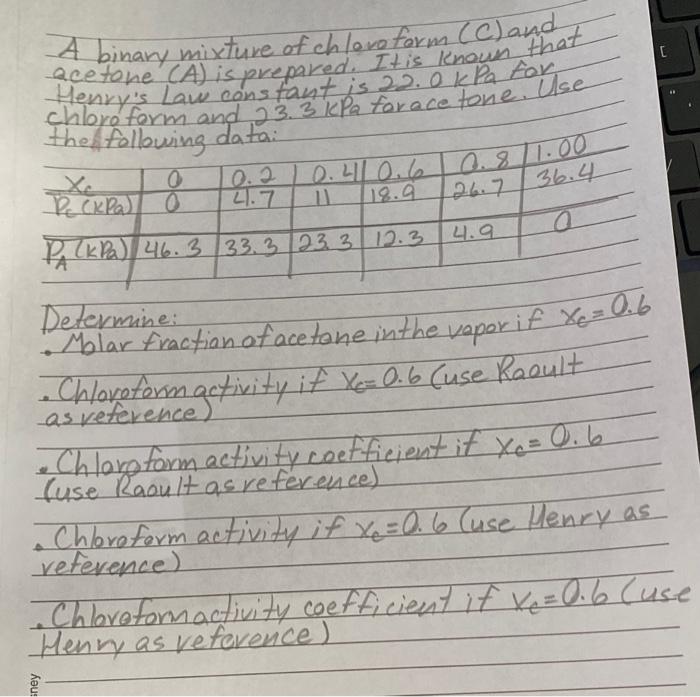 A binary mixture of chloroform (C) and
acetone (A) is prepared. It is known that
Henry's Law constant is 22.0 kPa for
chloroform and 23.3 kPa for acetone. Use
the following data:
Xc 0 0.2 0.4 0.6 0.8 1.00
Pc (kPa) 0 4.7 11 18.9 26.7 36.4
PA (kPa) 46.3 33.3 23.3 12.3 4.9 0
Determine:
• Molar fraction of acetone in the vapor if xc = 0.6
• Chloroform activity if xc = 0.6 (use Raoult
as reference)
• Chloroform activity coefficient if xc = 0.6
(use Raoult as reference)
• Chloroform activity if xc = 0.6 (use Henry as
reference)
• Chloroform activity coefficient if xc = 0.6 (use
Henry as reference)